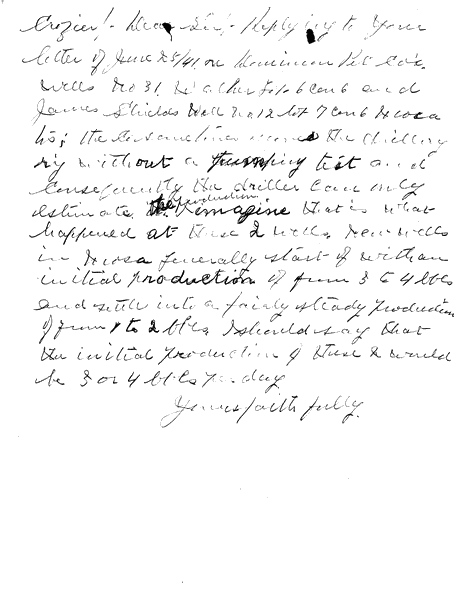 Crozier:- Dear Sir:- Replying to Your
letter of June 25/41, on Dominion Pet Co's.
Wells No 31, Walker Lot 6 Con 6 and
James Shields Well No 12 lot 7 Con 6 Mosa
the drilling
rig without a pumping test and
Consequently the driller can only
estimate the production. I imagine that is what
happened at these 2 wells. New wells
in Mosa generally start off with an
initial production of from 3 to 4 bbls
and settle into a fairly steady production
of from 1 to 2 bbls, I should say that
the initial production of these 2 would
be 3 or 4 bbls per day
Yours faithfully.